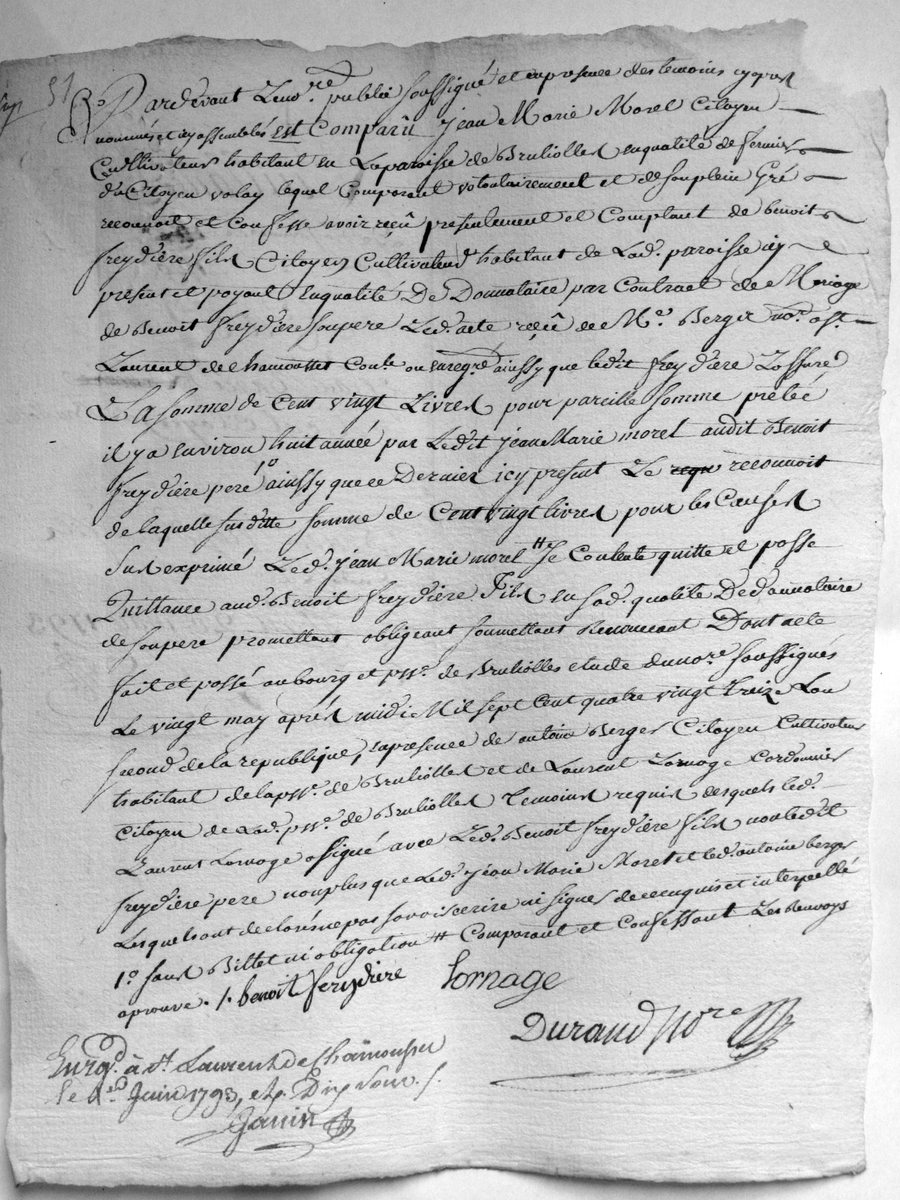 51
Pardevant Le no.re public soussigné et en presence des temoins cy apres
nommés et cy assemblés est Comparû jean Marie Morel Citoyen
Cultivateur habitant en La paroisse de Brulioles en qualité de fermier
du Citoyen valay lequel Comparant volontairement et de son plein Gré
reconnoit et Confesse avoir reçû presentement et Comptant de benoit
freydière fils Citoyen Cultivateur habitant de Lad. paroisse icy
present et payant En qualité De Donnataire par Contract de Mariage
de Benoit freydière son pere Led. acte reçû de M.e Berger no.re à S.t
Laurent de Chamousset Con.le ou enreg.ré ainssy que ledit freydière L'assure
La somme de Cent vingt Livres pour pareille somme prêtée
il y a environ huit année par Ledit jean Marie morel audit Benoit
freydière peré 1o ainssy que ce Dernier icy present Le reconnoit
de laquelle susditte somme de Cent vingt livres pour les Causes
Sus exprimé Led. jean Marie morel # Se Contente quitte et passe
Quittance aud. Benoit freydière Fils en sad. qualité De donnataire
de son pere promettant obligeant soumettant Renonceant Dont acte
fait et passé au bourg et p.sse de Brulioles etude du no.re soussignés
Le vingt may après midi Mil sept Cent quatre vingt treize L'an
second de la republique, en presence de antoine Berger Citoyen Cultivateur
habitant de la p.sse de Brulioles et de Laurent Lornage Cordonnier
Citoyen de Lad. p.sse de Brulioles Temoins requis desquels led.
Laurent Lornage a signé avec Led. Benoit freydière fils non ledit
freydière pere non plus que Led. jean Marie Morel et led. antoine berger
Lesquels ont declarés ne pas savoir ecrire ni signer de ce enquis et interpellé
1.o sans Billet ni obligation # Comparant et Confessant Les Renvoys
aprouvé . /. benoit freydiere Lornage
Durand No.re
Enreg. à S.t Laurent de Chamousset
le 1.er Juin 1793, Dix sous
Janin